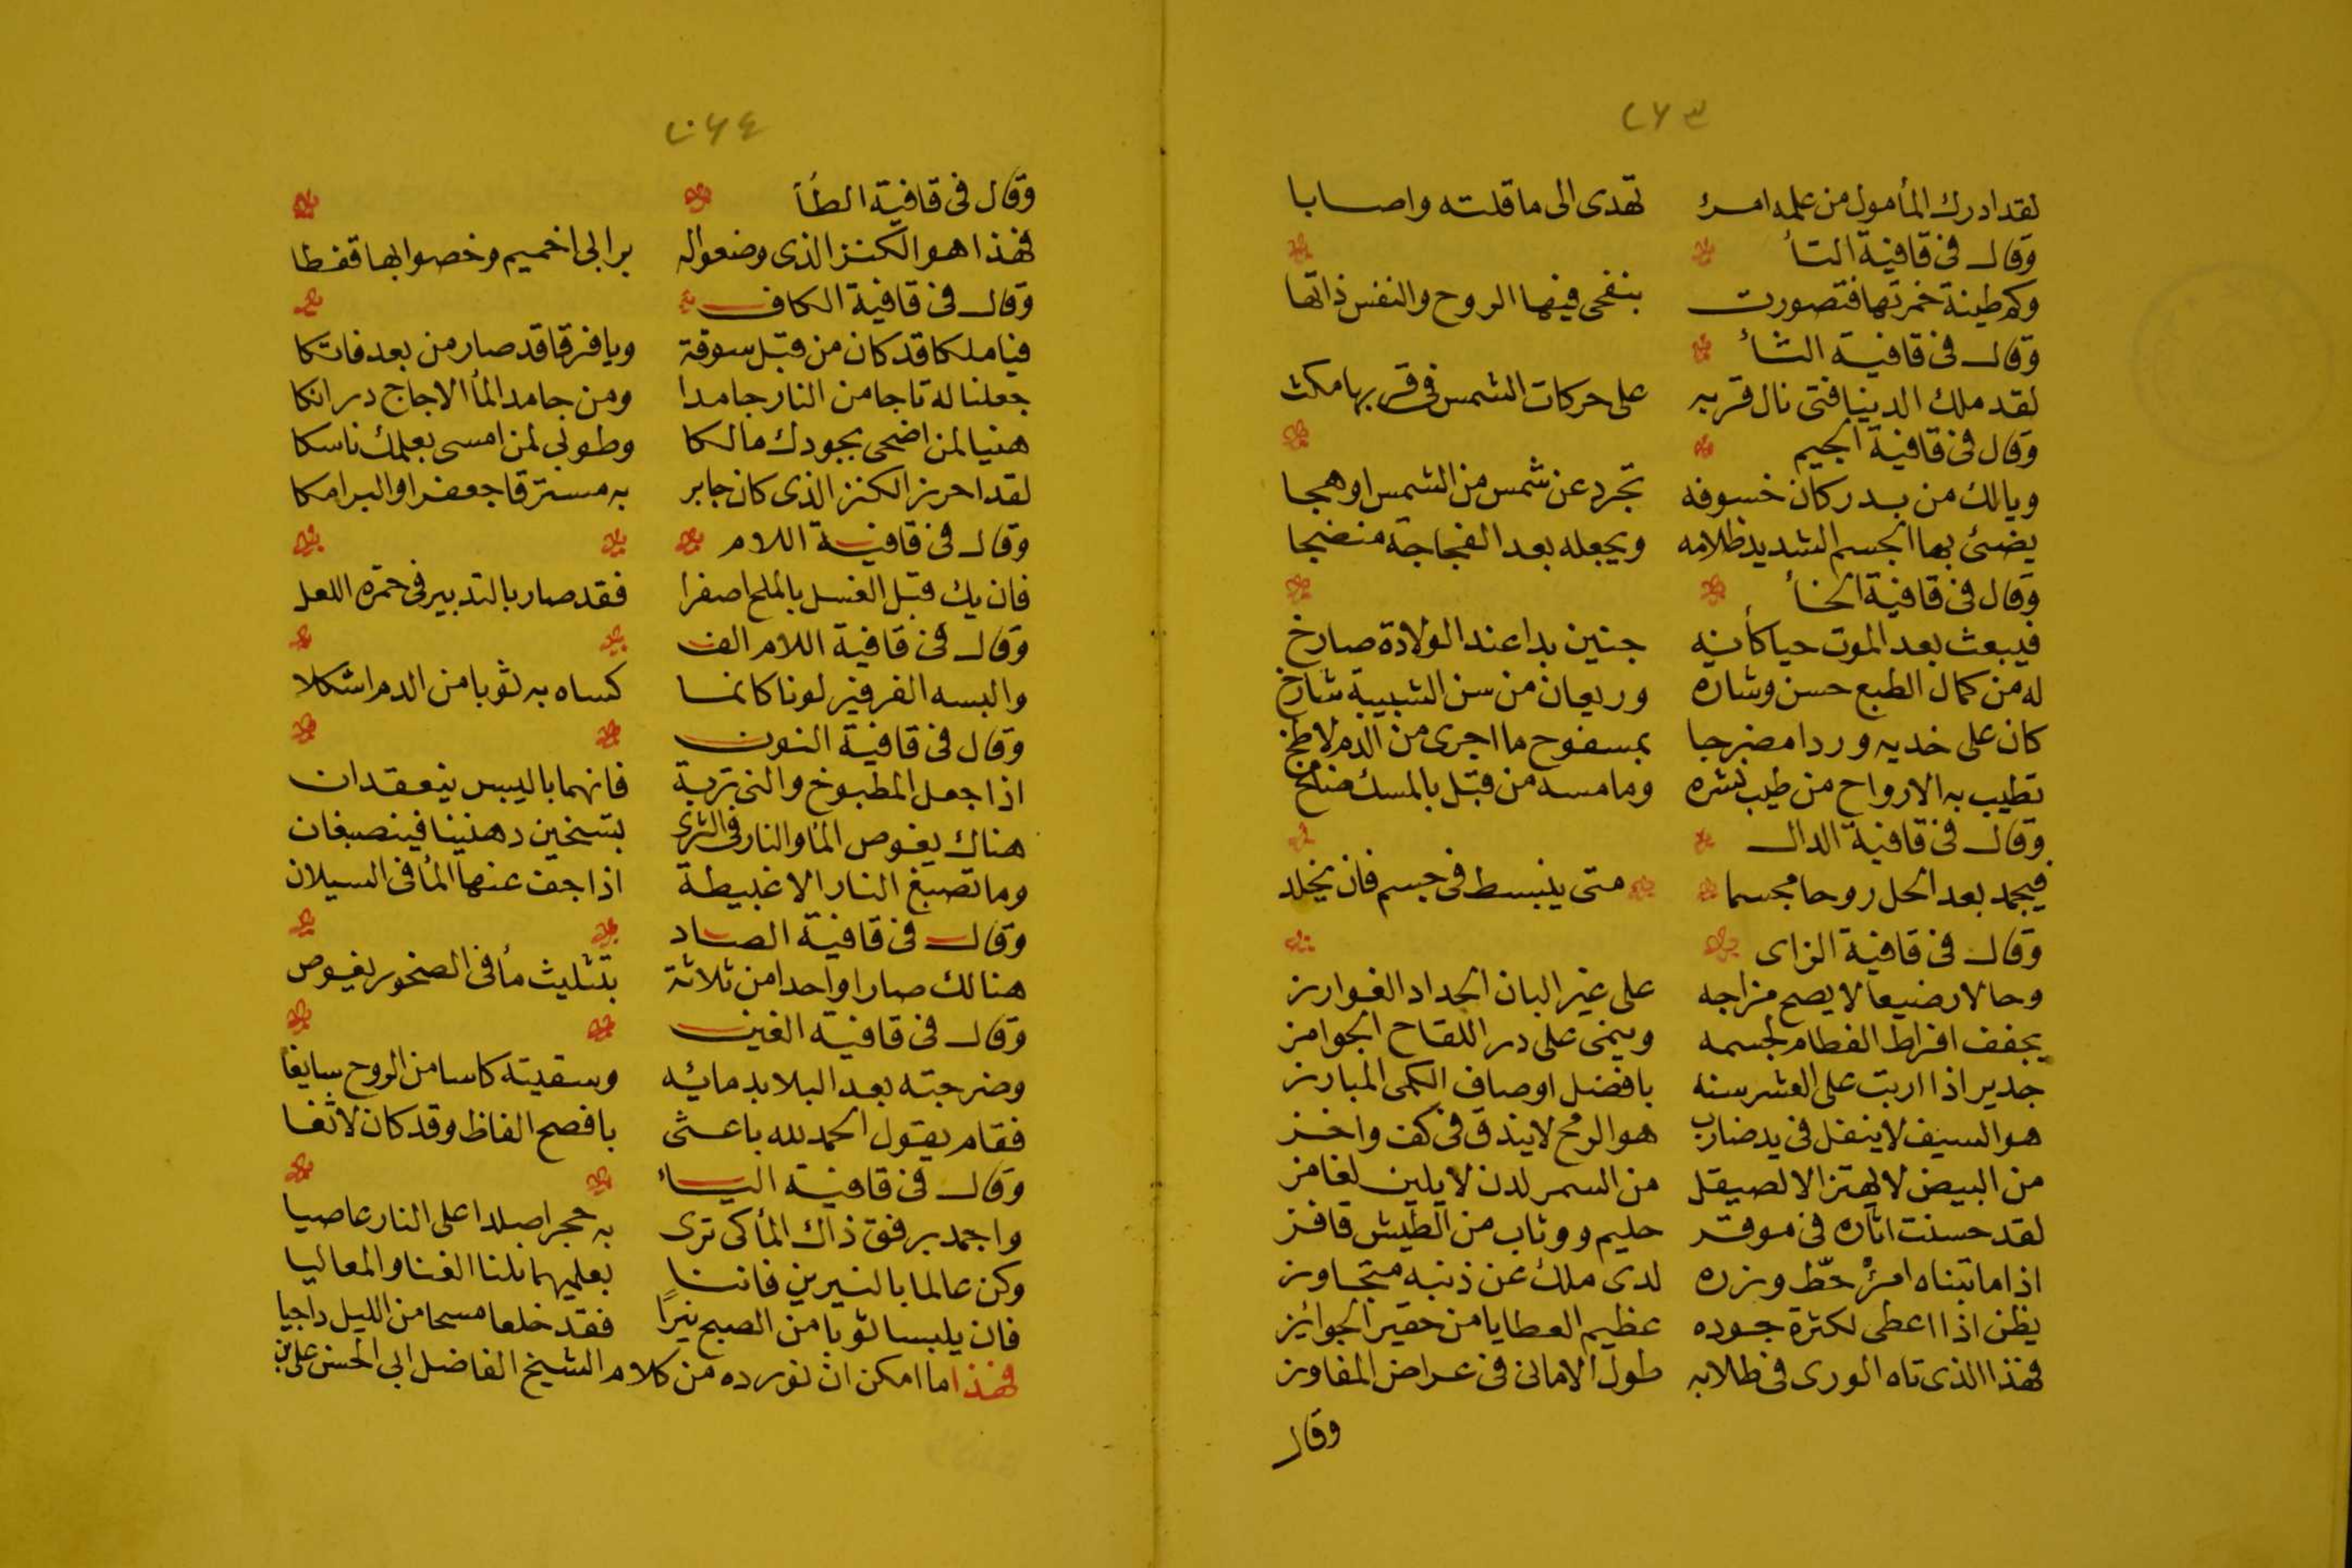 ٢٦٣
لقد ادرك المأمول من علمه امرئ تهدى الى ما قلته واصابا
وقال فى قافية التأ
وكم طينة خمرتها فتصورت بنفحى فيها الروح والنفس ذاتها
وقال فى قافية الثأ
لقد ملك الدينا فتى نال قربه على حركات الشمس فى قربها مكث
وقال فى قافية الجيم
ويالك من بدر كان خسوفه تجرد عن شمس من الشمس اوهجا
يضئ بها الجسم الشديد ظلامه ويجعله بعد الفجاجة منضجا
وقال فى قافية الخأ
فيبعث بعد الموت حيا كأنه جنين بدا عند الولادة صارخ
له من كمال الطبع حسن وشاره وريعان من سن الشبيبة شارخ
كان على خديه وردا مضرجا بمسفوح ما اجرى من الدم لاطخ
تطيب به الارواح من طيب نشره وما مسه من قبل بالمسك ضامخ
وقال فى قافية الدال
فيجمد بعد الحل روحا مجسما متى ينبسط فى جسم فان يخلد
وقال فى قافية الزاى
وحالا رضيعا لا يصح مزاجه على غير البان الحداد الغوارز
يجفف افراط الفطام لجسمه وينمى على در اللقاح الجوامز
جدير اذا اربت على العشر سنه بافضل اوصاف الكمى المبارز
هو السيف لا ينفل فى يد ضارب هو الرمح لا يندق فى كف واخز
من البيض لا يهتز الا لصيقل من السمر لدن لا يلين لغامز
لقد حسنت اثاره فى موقر حليم ووثاب من الطيش قافز
اذا ما تبناه امرؤ حط وزره لدى ملك عن ذنبه متجاوز
يظن اذا اعطى لكثرة جوده عظيم العطايا من حقير الجوائز
فهذا الذى تاه الورى فى طلابه طول الامانى فى عراض المفاوز
وقال
٢٦٤
وقال فى قافية الطأ
فهذا هو الكنز الذى وضعوا له برابى اخميم وخصوا بها قفطا
وقال فى قافية الكاف
فيا ملكا قد كان من قبل سوقة ويا فرقا قد صار من بعد فاتكا
جعلنا له تاجا من النار جامدا ومن جامد المأ الاجاج درانكا
هنيا لمن اضحى بجودك مالكا وطوبى لمن امسى بعلمك ناسكا
لقد احرز الكنز الذى كان جابر به مسترقا جعفرا والبرامكا
وقال فى قافية اللام
فان يك قبل الغسل بالملح اصفرا فقد صار بالتدبير فى حمرة اللعل
وقال فى قافية اللام الف
والبسه الفرفير لونا كانما كساه به ثوبا من الدم اشكلا
وقال فى قافية النون
اذا جعل المطبوخ والنى تربة فانهما باليبس ينعقدان
هناك يغوص الما والنار فى الثرى بتسخين دهنينا فينصبغان
وما تصبغ النار الا غبيطة اذا جف عنها المأ فى السيلان
وقال فى قافية الصاد
هنالك صارا واحدا من ثلاثة بتثليث مأ فى الصخور يغوص
وقال فى قافية الغين
وضرجته بعد البلا بدمائه وسقيته كاسا من الروح سايغا
فقام يقول الحمد لله باعثى بافصح الفاظ وقد كان لاثغا
وقال فى قافية اليا
واجمد برفق ذاك المأ كى ترى به حجرا صلدا على النار عاصيا
وكن عالما بالنيرين فاننا بعلميهما نلنا الغنا والمعاليا
فان يلبسا ثوبا من الصبح نيرا فقد خلعا مسحا من الليل داجيا
فهذا ما امكن ان نورده من كلام الشيخ الفاضل ابى الحسن على بن